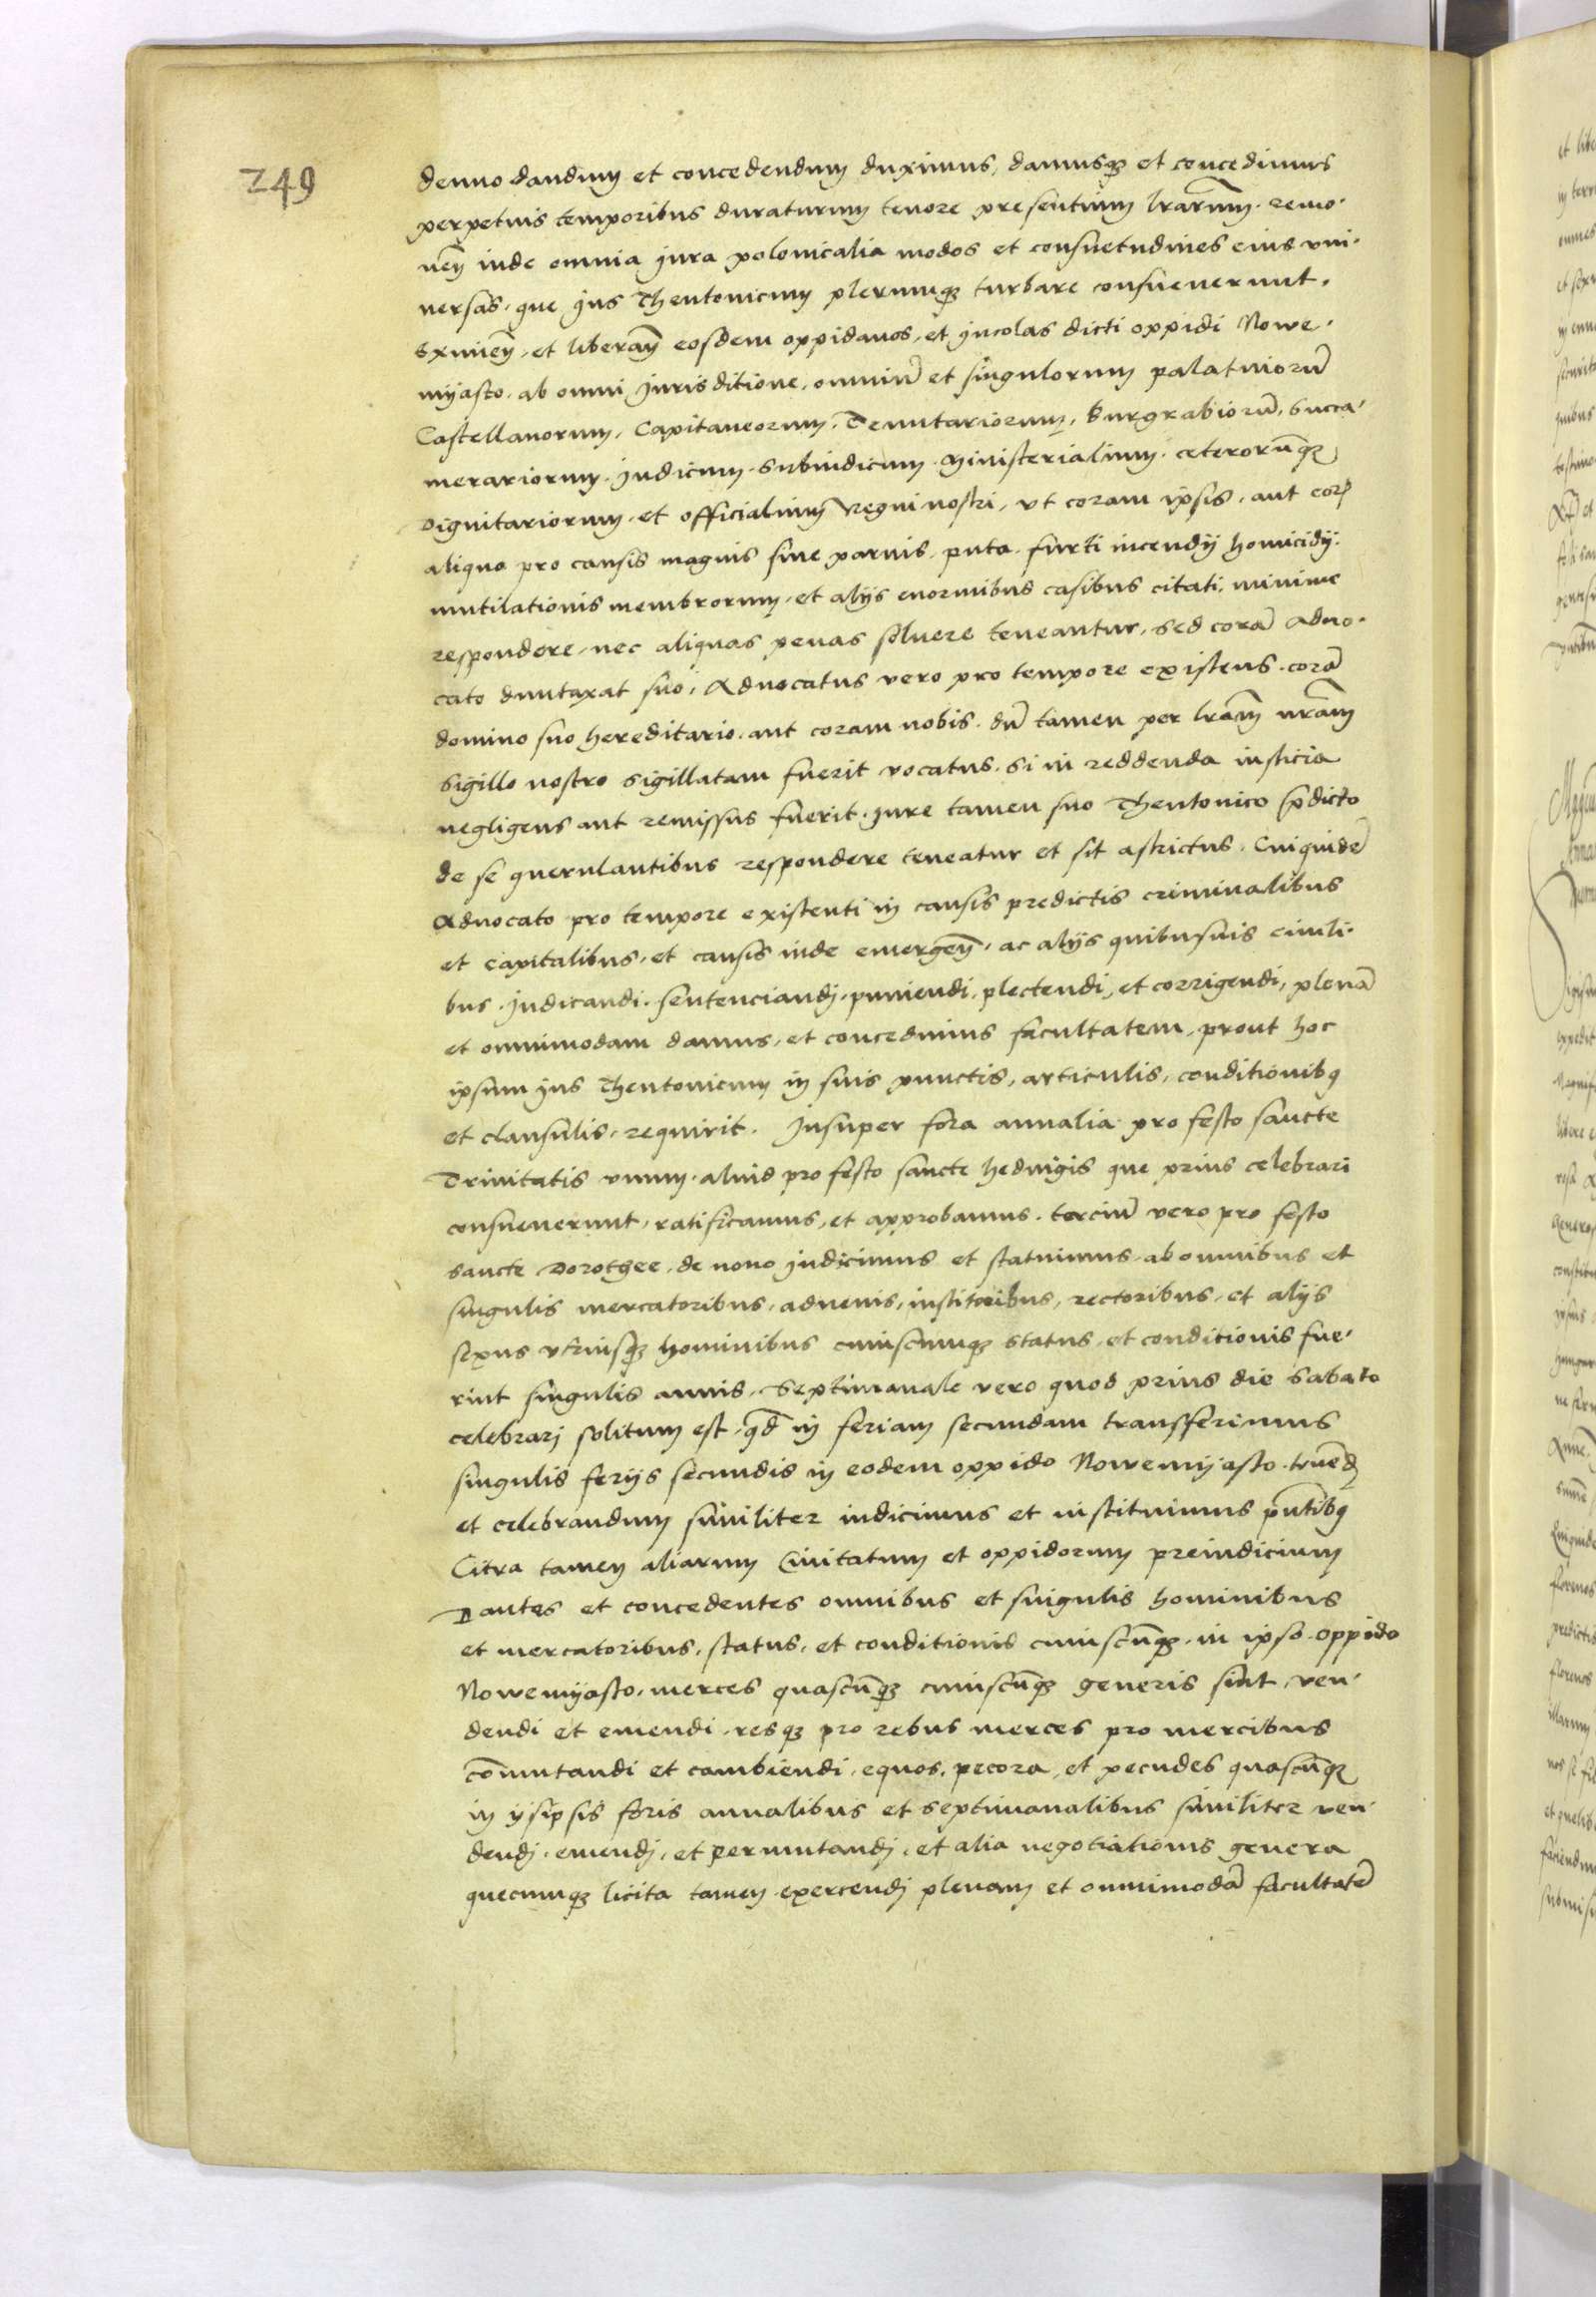 249
denuo dandum et concedendum duximus, damusqȝ et concedimus
perpetuis temporibus duraturum tenore presentium lrarum. remo-
ueñ inde omnia jura polonicalia modos et consuetudines eius vni-
uersas, que jus Theutonicum plerumqȝ turbare consueuerunt.
Eximeñ, et liberañ eosdem oppidanos, et jncolas dicti oppidi Nowe-
myasto, ab omni jurisditione, omniũ et singulorum palatinorũ
Castellanorum, Capitaneorum, Tenutariorum, Burgrabiorũ, Succa-
merariorum, judicum, Subiudicum, Ministerialium, ceterorũqȝ
Dignitariorum, et officialium Regni nostri, vt coram ipsis, aut eorꝫ
aliquo pro causis magnis siue paruis, puta, furti incendij homicidij
mutilationis membrorum, et alijs enormibus casibus citati, minime
respondere, nec aliquas penas soluere teneantur, sed corã Aduo-
cato duntaxat suo, Aduocatus vero pro tempore existens, corã
domino suo hereditario, aut coram nobis, dũ tamen per lrãm nrãm
sigillo nostro sigillatam fuerit vocatus, si in reddenda iusticia
negligens aut remissus fuerit, jure tamen suo Theutonico p̃dicto
de se querulantibus respondere teneatur et sit astrictus. Cuiquidẽ
Aduocato pro tempore existenti in causis predictis criminalibus
et capitalibus, et causis inde emergeñ, ac alijs quibusuis ciuili-
bus, judicandi, sentenciandj, puniendi, plectendi, et corrigendi, plenã
et omnimodam damus, et concedimus facultatem, prout hoc
ipsum jus Theutonicum in suis punctis, articulis, conditionibȝ
et clausulis, requirit. Jnsuper fora annalia pro festo sancte
Trinitatis vnum, aliud pro festo sancte Heduigis que prius celebrari
consueuerunt, ratificamus, et approbamus. terciũ vero pro festo
sancte Dorothee, de nouo jndicimus et statuimus, ab omnibus et
singulis mercatoribus, aduenis, institoribus, rectoribus, et alijs
sexus vtriusqȝ hominibus cuiuscumqȝ status, et conditionis fue-
rint singulis annis, Septimanale vero quod prius die Sabato
celebrarj solitum est, qd̃ in feriam secundam transferimus
singulis ferijs secundis in eodem oppido Nowemyasto, tneñd
et celebrandum similiter indicimus et instituimus pñtibȝ
Citra tamen aliarum Ciuitatum et oppidorum preiudicium
Dantes et concedentes omnibus et singulis hominibus
et mercatoribus, status, et conditionis cuiuscũqȝ, in ipso oppido
Nowemyasto, merces quascũqȝ cuiuscũqȝ generis sint, ven-
dendi et emendi, resqȝ pro rebus merces pro mercibus
cõmutandi et cambiendi, equos, pecora, et pecudes quascũqȝ
in ijsipsis foris annalibus et septimanalibus similiter ven-
dendj, emendj, et permutandj, et alia negotiationis genera
quecumqȝ licita tamen exercendj plenam et omnimodã facultatẽ